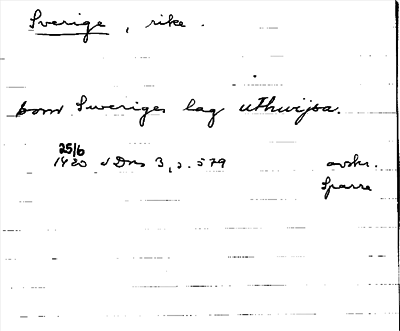 Sverige, rike.
som Sweriges lag uthwijsa.
25/6
1420 SDns 3, s. 579 avskr.
Sparre